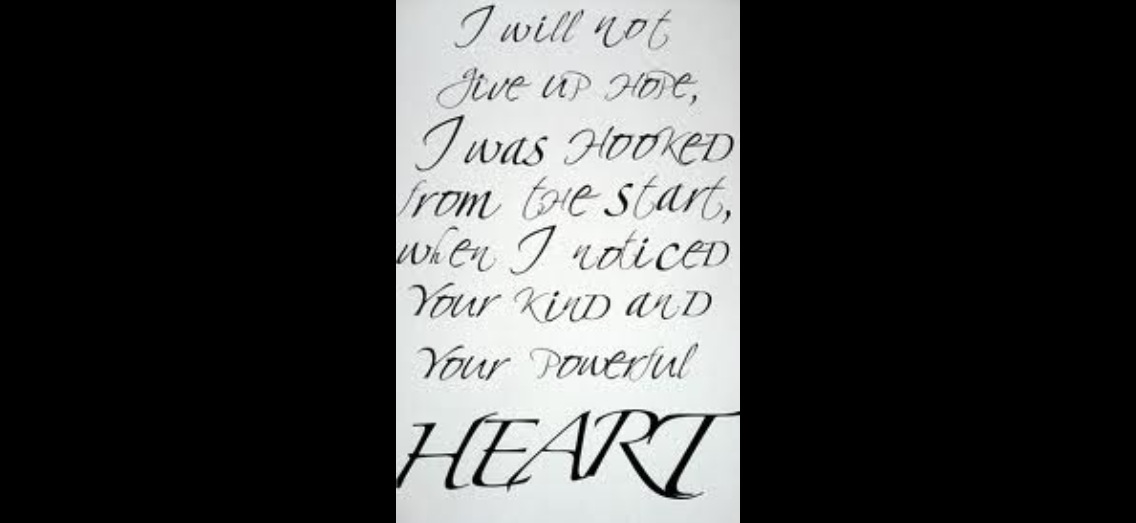 I will not
give up Hope,
I was HOOKED
from the start,
when I noticed
Your KinD anD
Your Powerful
HEART